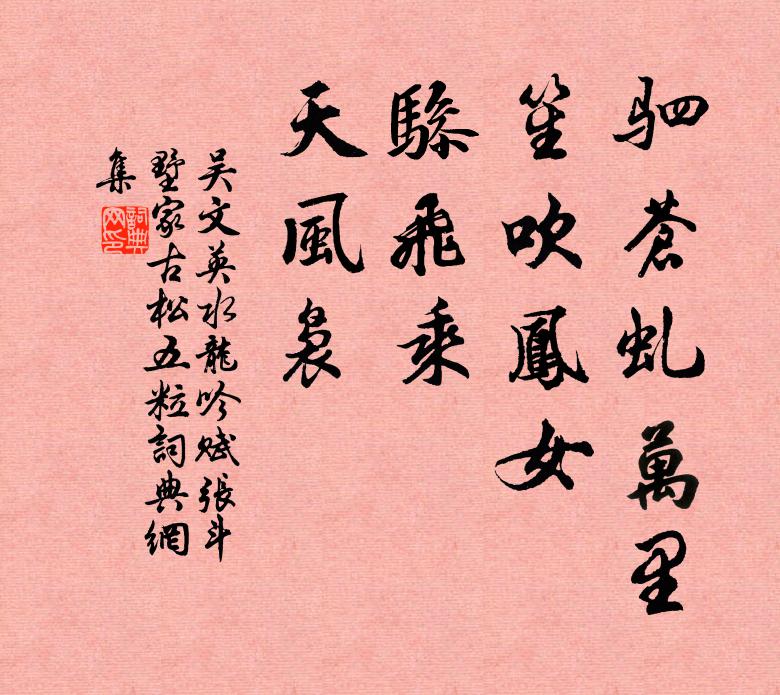 驷蒼虬萬里
笙吹鳳女
驂飛乘
天風裊
吴文英水龍吟赋張斗
墅家古松五粒詞典網
集
詞典
网印